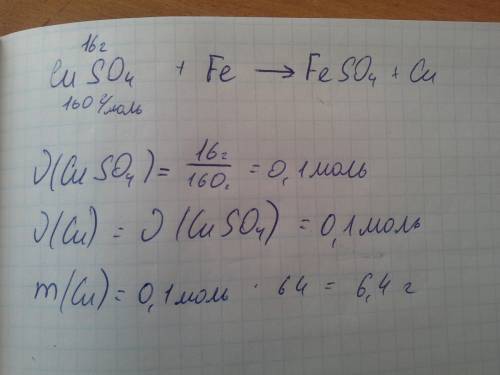 16г
CuSO₄ + Fe → FeSO₄ + Cu
160 г/моль
ν(CuSO₄) = 16г / 160г = 0,1 моль
ν(Cu) = ν(CuSO₄) = 0,1 моль
m(Cu) = 0,1 моль · 64 = 6,4 г